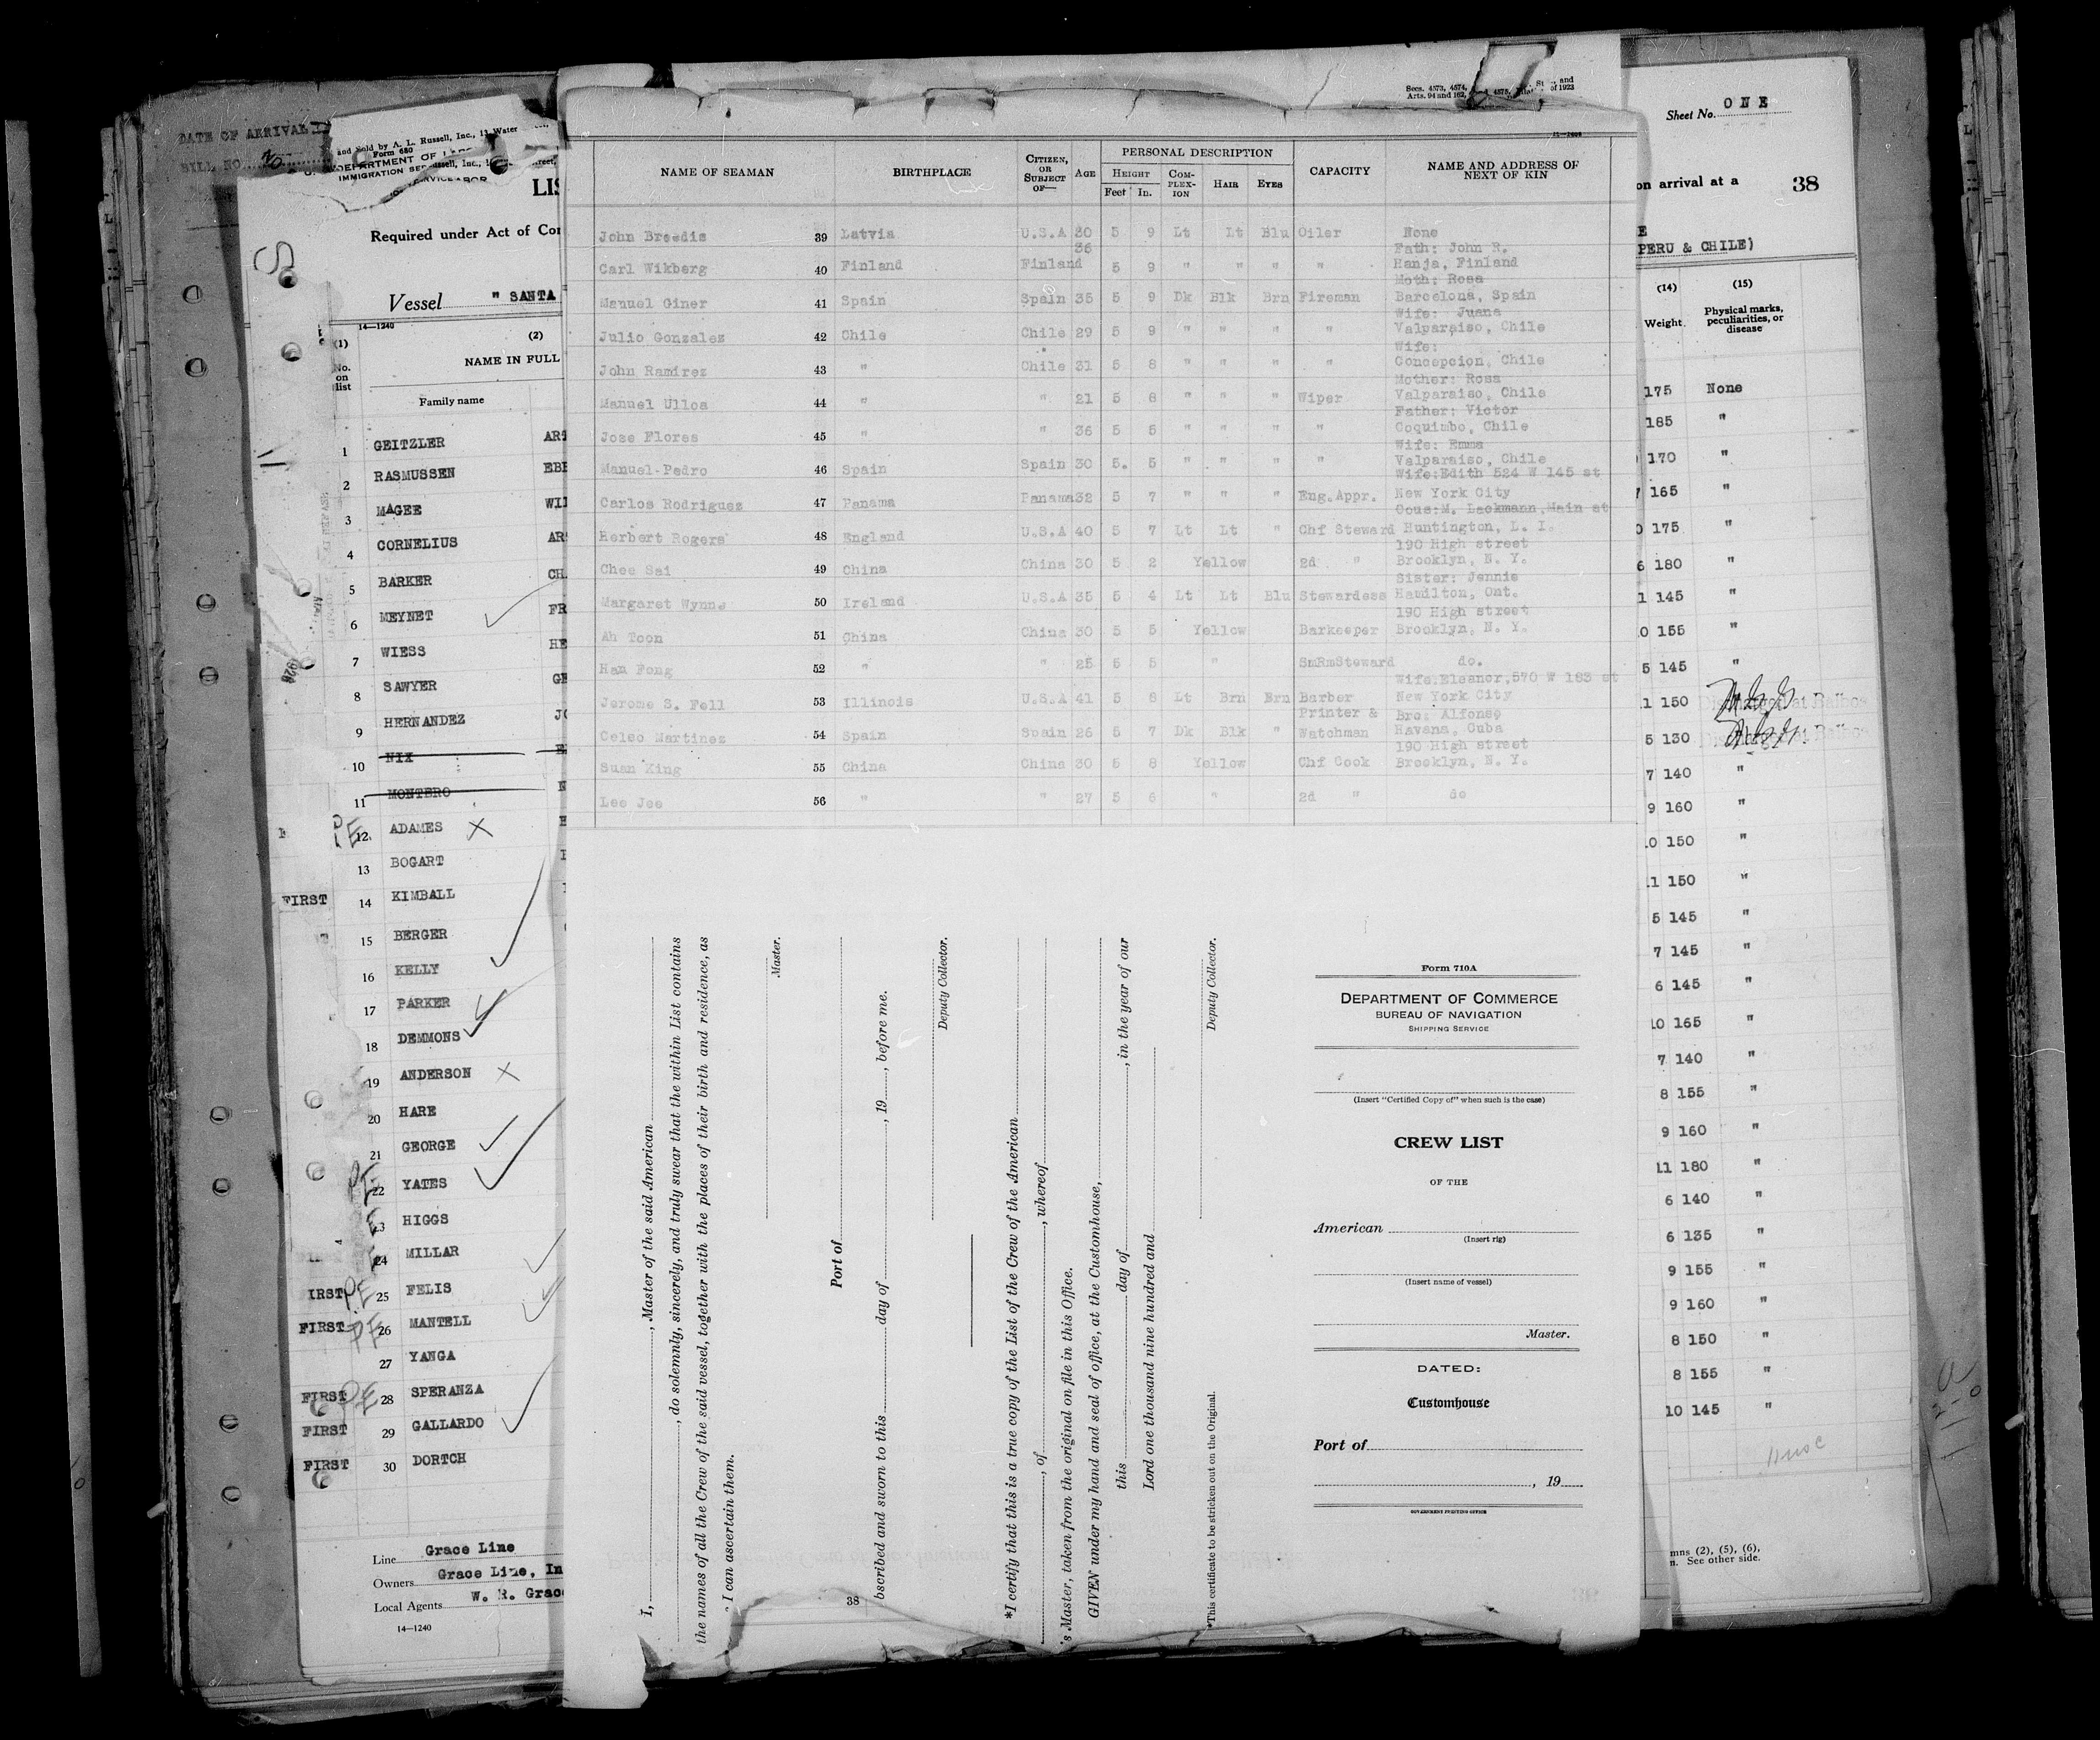 DATE OF ARRIVAL
BILL NO.
and Sold by A. L. Russell, Inc., 11 Water
Form 680
DEPARTMENT OF
IMMIGRATION
LIS
Required under Act of Con
Vessel " SANTA
14—1240
(1) (2)
No. on list
NAME IN FULL
Family name
1 GEITZLER
2 RASMUSSEN
3 MAGEE
4 CORNELIUS
5 BARKER
6 MEYNET
7 WIESS
8 SAWYER
9 HERNANDEZ
10 NIX
11 MONTERO
12 ADAMES X
13 BOGART
FIRST 14 KIMBALL
15 BERGER
16 KELLY
17 PARKER
18 DEMMONS
19 ANDERSON X
20 HARE
21 GEORGE
PE 22 YATES
23 HIGGS
24 MILLAR
IRST PE 25 FELIS
FIRST PE 26 MANTELL
27 YANGA
FIRST PE 28 SPERANZA
FIRST 29 GALLARDO
FIRST 30 DORTCH
Line Grace Line
Owners Grace Line, In
Local Agents W. R. Grac
14—1240
Secs. 4573, 4574, 4575, and
Arts. 94 and 162, of 1923
NAME OF SEAMAN BIRTHPLACE CITIZEN, OR SUBJECT OF— AGE PERSONAL DESCRIPTION CAPACITY NAME AND ADDRESS OF NEXT OF KIN
HEIGHT COMPLEXION HAIR EYES
Feet In.
John Breedis 39 Latvia U.S.A 30 5 9 Lt Lt Blu Oiler None
36 Fath: John R.
Carl Wikberg 40 Finland Finland 5 9 " " " " Hanja, Finland
Moth: Rosa
Manuel Giner 41 Spain Spain 35 5 9 Dk Blk Brn Fireman Barcelona, Spain
Wife: Juana
Julio Gonzales 42 Chile Chile 29 5 9 " " " " Valparaiso, Chile
Wife:
John Ramirez 43 " Chile 31 5 8 " " " " Concepcion, Chile
Mother: Rosa
Manuel Ulloa 44 " " 21 5 8 " " " Wiper Valparaiso, Chile
Father: Victor
Jose Flores 45 " " 36 5 5 " " " " Coquimbo, Chile
Wife: Emma
Manuel-Pedro 46 Spain Spain 30 5. 5 " " " " Valparaiso, Chile
Wife:Edith 524 W 145 st
Carlos Rodriguez 47 Panama Panama 32 5 7 " " " Eng.Appr. New York City
Cous:M. Lackmann,Main st
Herbert Rogers 48 England U.S.A 40 5 7 Lt Lt " Chf Steward Huntington, L. I.
190 High street
Chee Sai 49 China China 30 5 2 Yellow 2d " Brooklyn, N. Y.
Sister: Jennie
Margaret Wynne 50 Ireland U.S.A 35 5 4 Lt Lt Blu Stewardess Hamilton, Ont.
190 High street
Ah Toon 51 China China 30 5 5 Yellow Barkeeper Brooklyn, N. Y.
Han Fong 52 " " 25 5 5 " SmRmSteward do.
Wife:Eleanor,570 W 183 st
Jerome S. Fell 53 Illinois U.S.A 41 5 8 Lt Brn Brn Barber New York City
Printer & Bro: Alfonso
Celso Martinez 54 Spain Spain 26 5 7 Dk Blk " Watchman Havana, Cuba
190 High street
Suan King 55 China China 30 5 8 Yellow Chf Cook Brooklyn, N. Y.
Lee Jee 56 " " 27 5 6 " 2d " do
I, , Master of the said American
, do solemnly, sincerely, and truly swear that the within List contains
the names of all the Crew of the said vessel, together with the places of their birth and residence, as
I can ascertain them.
Master.
Port of
bscribed and sworn to this day of , 19 , before me.
Deputy Collector.
*I certify that this is a true copy of the List of the Crew of the American
, of , whereof
's Master, taken from the original on file in this Office.
GIVEN under my hand and seal of office, at the Customhouse,
this day of , in the year of our
Lord one thousand nine hundred and
Deputy Collector.
*This certificate to be stricken out on the Original.
38
Form 710A
DEPARTMENT OF COMMERCE
BUREAU OF NAVIGATION
SHIPPING SERVICE
(Insert "Certified Copy of" when such is the case)
CREW LIST
OF THE
American
(Insert rig)
(Insert name of vessel)
Master.
DATED:
Customhouse
Port of
, 19
GOVERNMENT PRINTING OFFICE
Sheet No. ONE
on arrival at a 38
E
PERU & CHILE)
(14) (15)
Weight Physical marks, peculiarities, or disease
175 None
185 "
170 "
165 "
175 "
6 180 "
1 145 "
0 155 "
5 145 "
1 150 at Balboa
5 130 at Balboa
7 140 "
9 160 "
10 150 "
11 150 "
5 145 "
7 145 "
6 145 "
10 165 "
7 140 "
8 155 "
9 160 "
11 180 "
6 140 "
6 135 "
9 155 "
9 160 "
8 150 "
8 155 "
10 145 "
mns (2), (5), (6),
n. See other side.